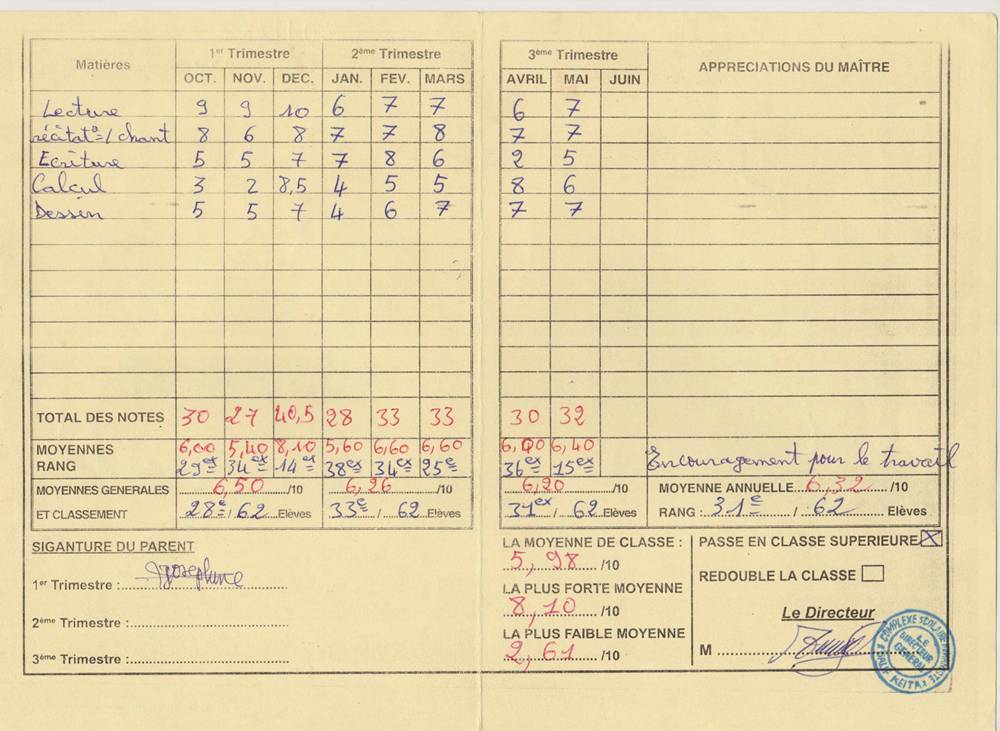 Matières 1er Trimestre 2ème Trimestre 3ème Trimestre APPRECIATIONS DU MAÎTRE
OCT. NOV. DEC. JAN. FEV. MARS AVRIL MAI JUIN
Lecture 9 9 10 6 7 7 6 7
récitat°/chant 8 6 8 7 7 8 7 7
Ecriture 5 5 7 7 8 6 2 5
Calcul 3 2 8,5 4 5 5 8 6
Dessin 5 5 7 4 6 7 7 7
TOTAL DES NOTES 30 27 40,5 28 33 33 30 32
MOYENNES 6,00 5,40 8,10 5,60 6,60 6,60 6,00 6,40
RANG 29ex 34ex 14ex 38ex 34ex 25e 36ex 15ex Encouragement pour le travail
MOYENNES GENERALES 6,50 /10 6,26 /10 6,20 /10 MOYENNE ANNUELLE 6,32 /10
ET CLASSEMENT 28e / 62 Elèves 33e / 62 Elèves 31ex / 62 Elèves RANG : 31e / 62 Elèves
SIGANTURE DU PARENT
1er Trimestre : Josephine
2ème Trimestre :
3ème Trimestre :
LA MOYENNE DE CLASSE :
5,98 /10
LA PLUS FORTE MOYENNE
8,10 /10
LA PLUS FAIBLE MOYENNE
2,61 /10
PASSE EN CLASSE SUPERIEURE X
REDOUBLE LA CLASSE
Le Directeur
M
COMPLEXE SCOLAIRE
LE DIRECTEUR GENERAL
KEITA